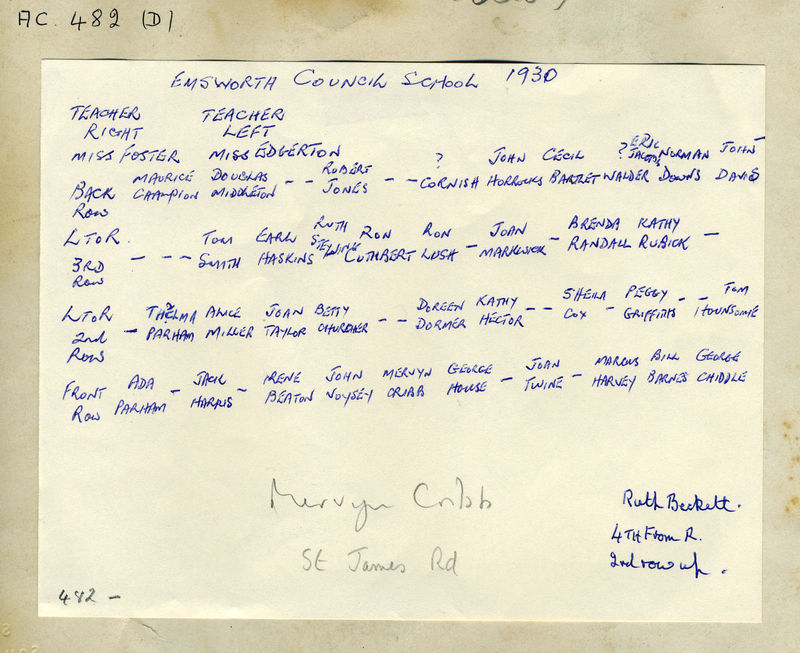 AC. 482 (D)
EMSWORTH COUNCIL SCHOOL 1930
TEACHER TEACHER
RIGHT LEFT
MISS FOSTER MISS EDGERTON ? JOHN CECIL ? ERIC JACOBS NORMAN JOHN
MAURICE DOUGLAS ROBERT
BACK CHAMPION MIDDLETON - - JONES - - CORNISH HORROCKS BARTLET WALDER DOWNS DAVIS
ROW
L TO R. TOM EARL RUTH RON RON JOAN BRENDA KATHY
3RD - - - SMITH HASKINS CUTHBERT LUSH - MARKWICK - RANDALL RUBICK -
ROW
L TO R THELMA ALICE JOAN BETTY DOREEN KATHY SHEILA PEGGY TOM
2nd - PARHAM MILLER TAYLOR CHURCHER - - DORMER HECTOR - - COX - GRIFFITHS - - HOUNSOME
ROW
FRONT ADA JACK IRENE JOHN MERVYN GEORGE JOAN MARCUS BILL GEORGE
ROW PARHAM - HARRIS - BEATON VOYSEY CRIBB HOUSE - TWINE - HARVEY BARNES CHIDDLE
Mervyn Cribb
St James Rd
Ruth Beckett.
4TH From R.
2nd row up.
482 -